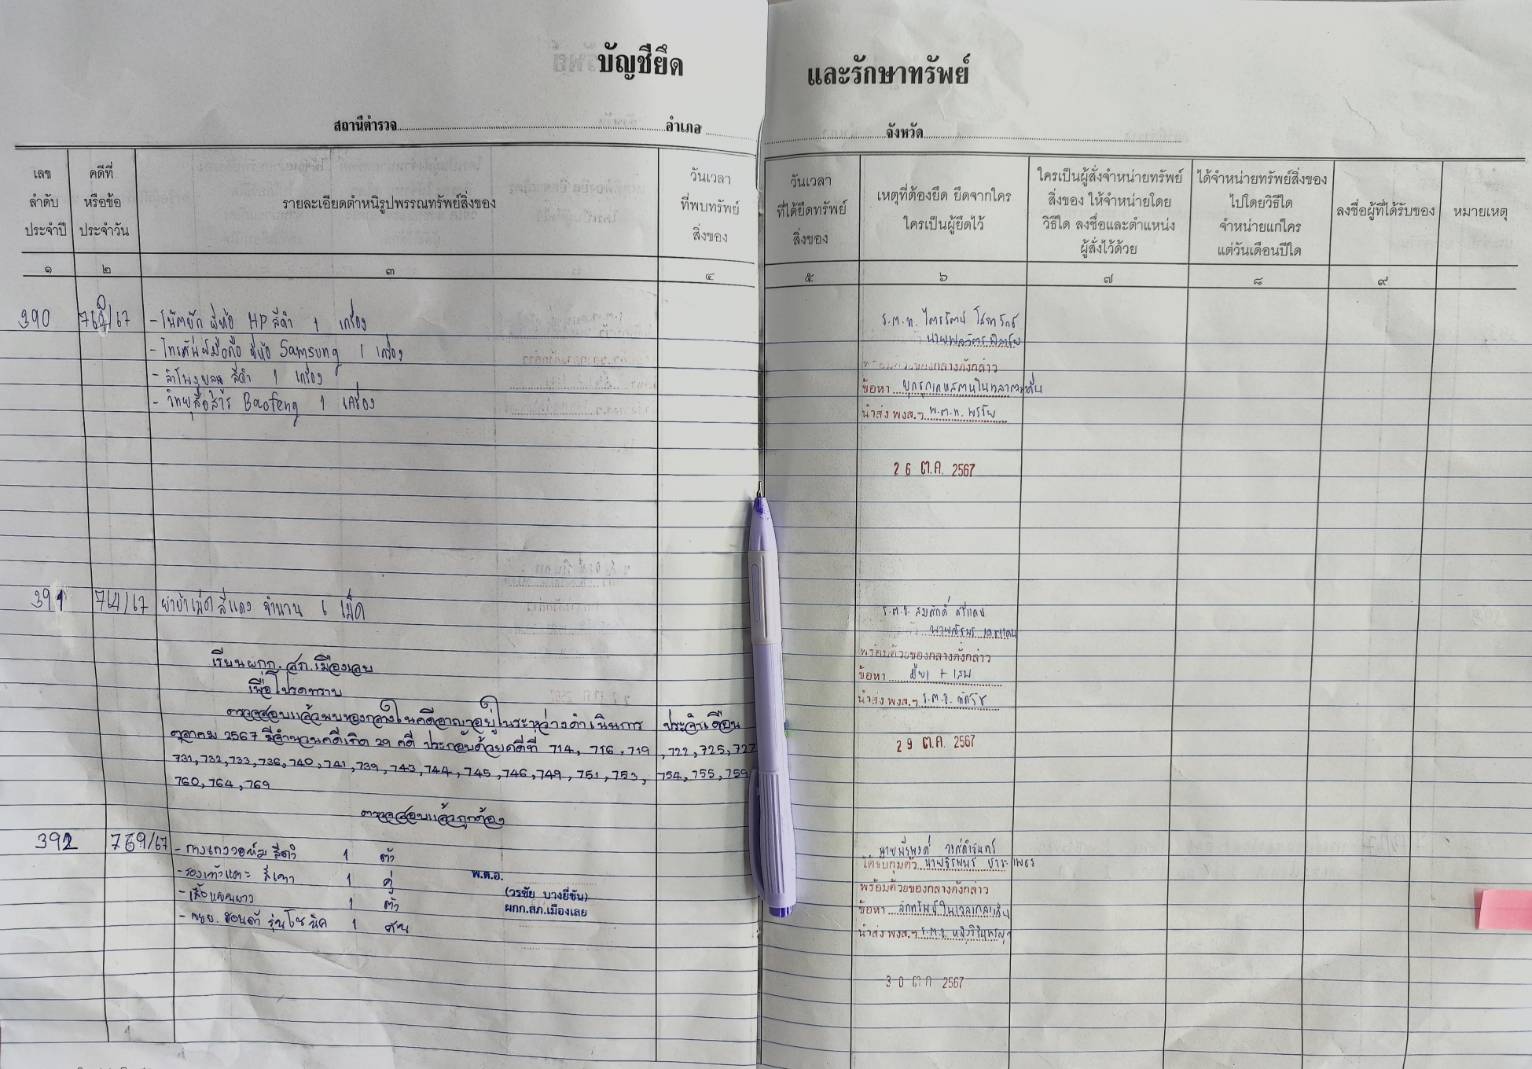 บัญชียึด และรักษาทรัพย์
สถานีตำรวจ อำเภอ จังหวัด
เลขลำดับประจำปี
คดีที่หรือข้อประจำวัน
รายละเอียดตำหนิรูปพรรณทรัพย์สิ่งของ
วันเวลาที่พบทรัพย์สิ่งของ
วันเวลาที่ได้ยึดทรัพย์สิ่งของ
เหตุที่ต้องยึด ยึดจากใคร ใครเป็นผู้ยึดไว้
ใครเป็นผู้สั่งจำหน่ายทรัพย์สิ่งของ ให้จำหน่ายโดยวิธีใด ลงชื่อและตำแหน่งผู้สั่งไว้ด้วย
ได้จำหน่ายทรัพย์สิ่งของไปโดยวิธีใด จำหน่ายแก่ใคร แต่วันเดือนปีใด
ลงชื่อผู้ที่ได้รับของ
หมายเหตุ
๑ ๒ ๓ ๔ ๕ ๖ ๗ ๘ ๙
390
- โน้ตบุ๊ก ยี่ห้อ HP สีดำ 1 เครื่อง
- โทรศัพท์มือถือ ยี่ห้อ Samsung 1 เครื่อง
- ลำโพง สีดำ 1 เครื่อง
- วิทยุสื่อสาร Baofeng 1 เครื่อง
ร.ต.ท.
พร้อมด้วยของกลางดังกล่าว
ข้อหา
นำส่ง พงส.ฯ พ.ต.ท.
26 ต.ค. 2567
391 764/67 ยาบ้าเม็ดสีแดง จำนวน 6 เม็ด
พร้อมด้วยของกลางดังกล่าว
ข้อหา
นำส่ง พงส.ฯ ร.ต.อ.
29 ต.ค. 2567
เรียน ผกก.สภ.เมืองเลย
เพื่อโปรดทราบ
ตรวจสอบแล้วพบของกลางในคดีอาญาอยู่ในระหว่างดำเนินการ ประจำเดือน
ตุลาคม 2567 มีจำนวนคดีเกิด 29 คดี ประกอบด้วยคดีที่ 714, 716, 719, 722, 725, 727
731, 732, 733, 736, 740, 741, 739, 743, 744, 745, 746, 749, 751, 753, 754, 755, 759
760, 764, 769
ตรวจสอบแล้วถูกต้อง
พ.ต.อ.
(วรชัย บางยี่ขัน)
ผกก.สภ.เมืองเลย
392 769/67 - กางเกงวอร์ม สีดำ 1 ตัว
- รองเท้าแตะ สีเทา 1 คู่
- เสื้อแขนยาว 1 ตัว
- ฮอนด้า รุ่นโซนิค 1 คัน
ได้จับกุมตัว
พร้อมด้วยของกลางดังกล่าว
ข้อหา ลักทรัพย์ในเวลากลางคืน
นำส่ง พงส.ฯ ร.ต.อ.
30 ต.ค. 2567